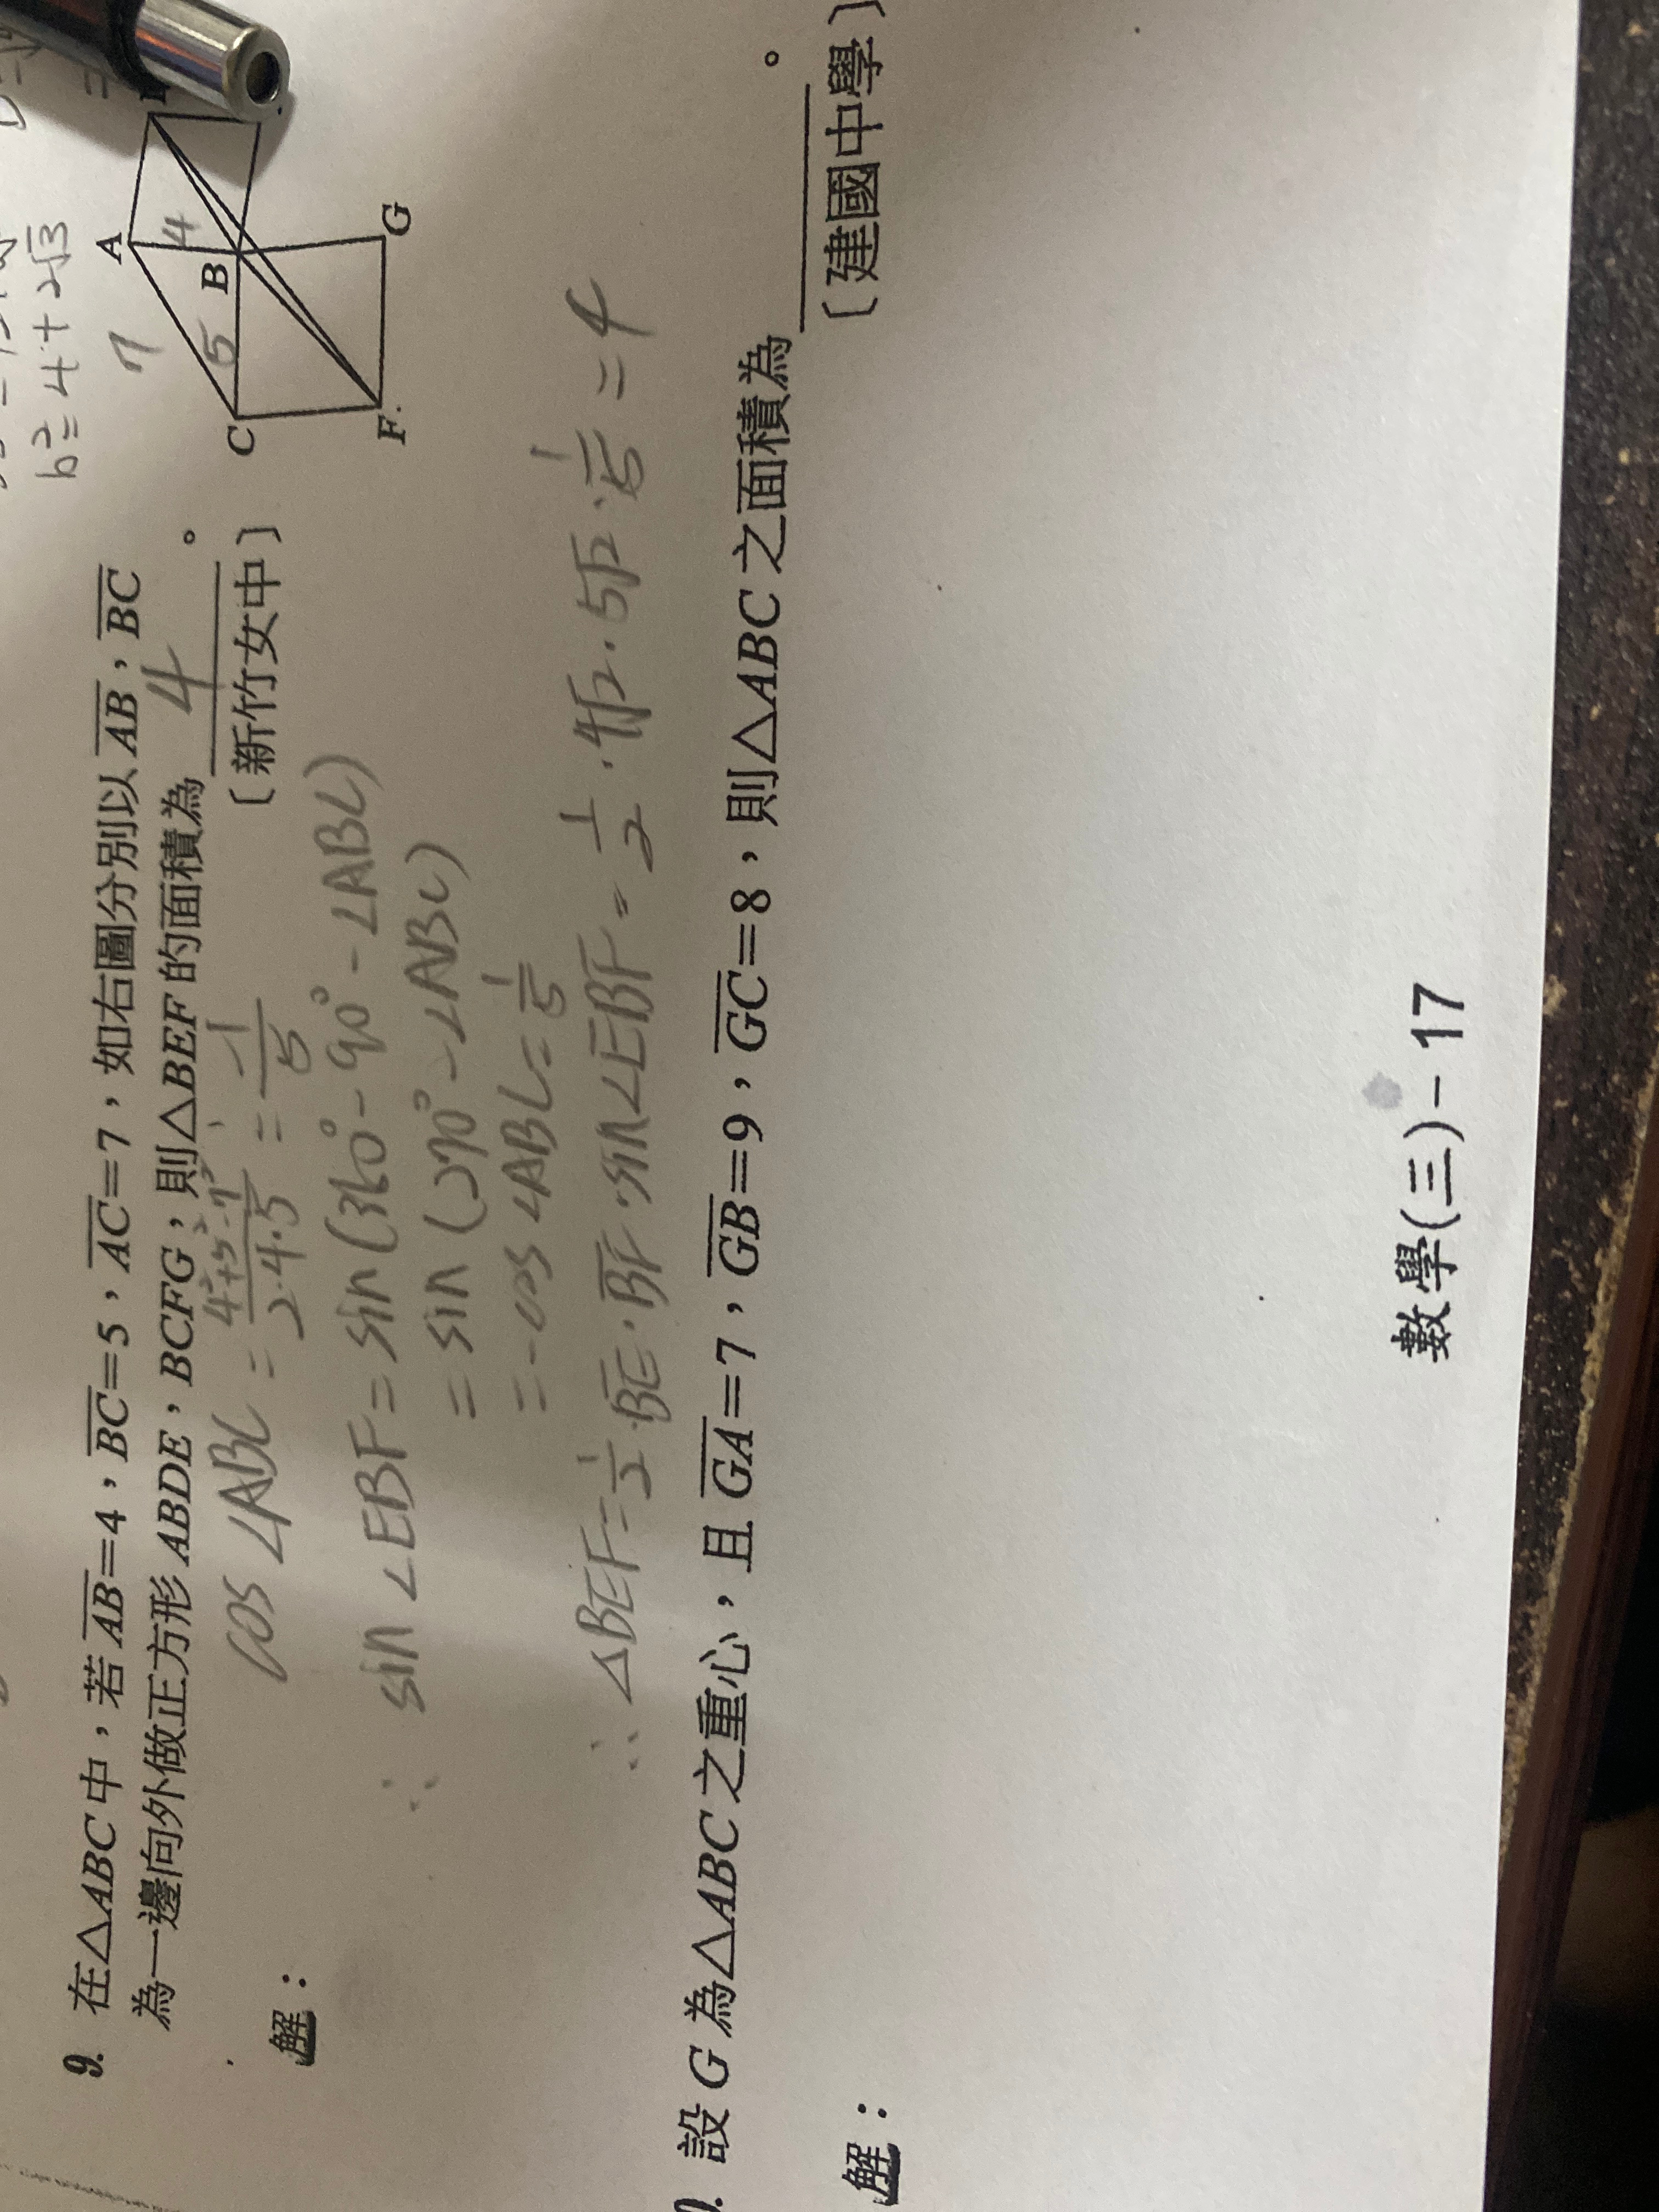 b²=4+2√3
9. 在△ABC中,若AB=4,BC=5,AC=7,如右圖分別以AB,BC
為一邊向外做正方形ABDE,BCFG,則△BEF的面積為 4 。
〔新竹女中〕
A
7
4
5
B
C
F
G
解:
cos∠ABC = (4²+5²-7²)/(2·4·5) = -1/5
∴ sin∠EBF = sin(360°-90°-∠ABC)
= sin(270°-∠ABC)
= -cos∠ABC = 1/5
∴ △BEF = 1/2·BE·BF·sin∠EBF = 1/2·4√2·5√2·1/5 = 4
設G為△ABC之重心,且GA=7,GB=9,GC=8,則△ABC之面積為 。
〔建國中學〕
解:
數學(三)-17